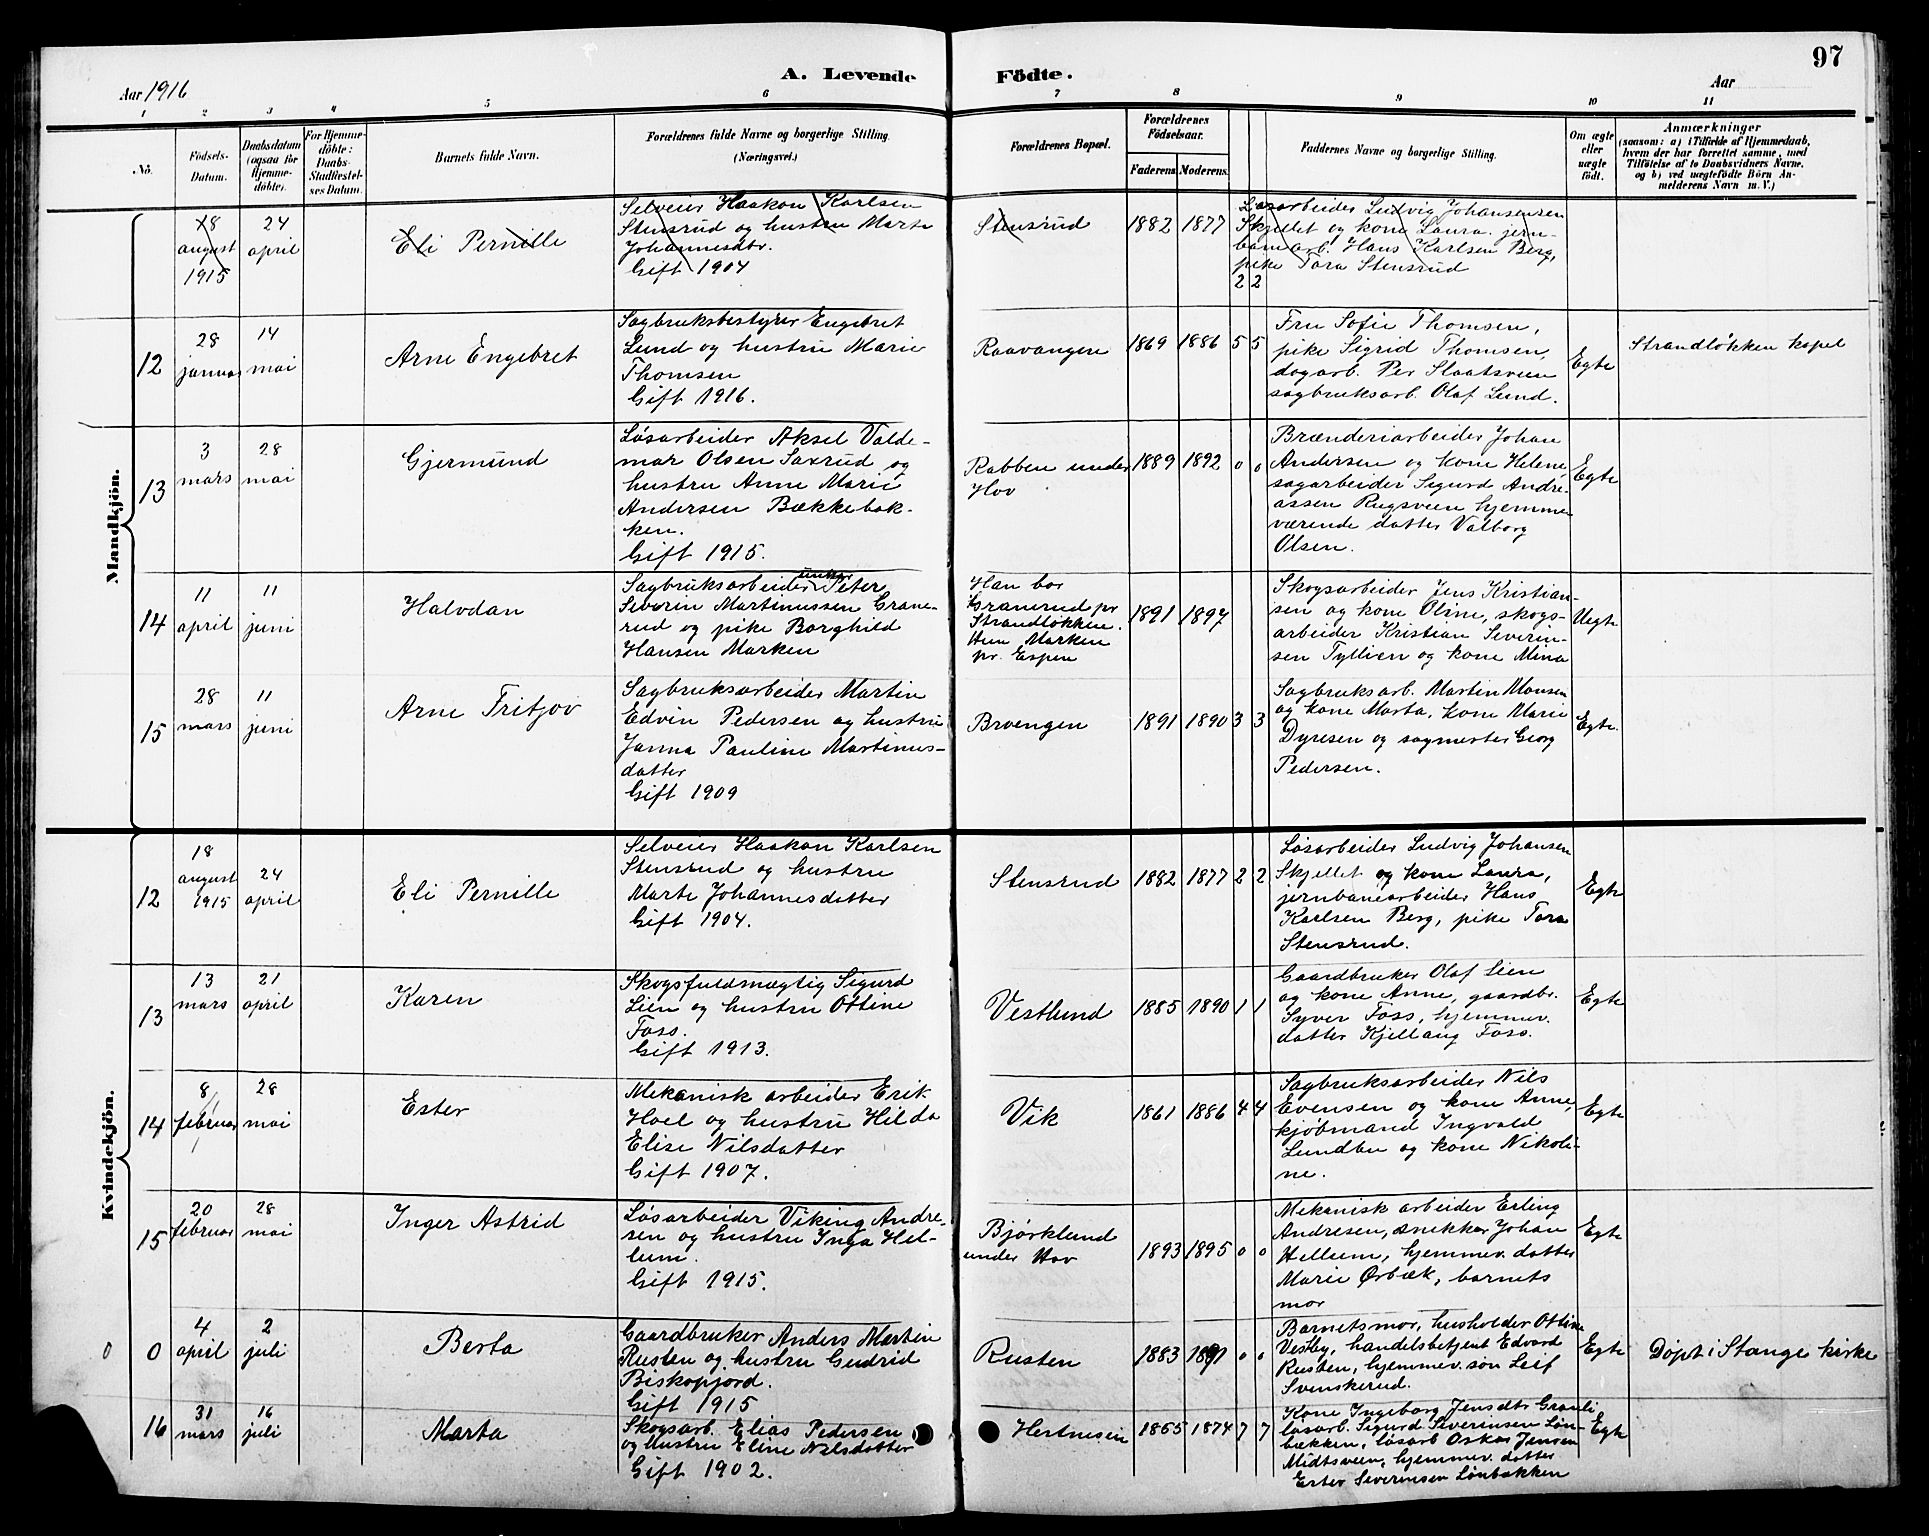 97
Aar 1916
A. Levende
Födte.
Aar
1 2 3 4 5 6 7 8 9 10 11
No.
Födsels-
Datum.
Daabsdatum
(ogsaa för
Hjemme-
döbte).
For Hjemme-
döbte:
Daabs-
Stadfæstel-
ses Datum.
Barnets fulde Navn.
Forældrenes fulde Navne og borgerlige Stilling.
(Næringsvei.)
Forældrenes Bopæl.
Forældrenes
Födselsaar.
Faderens. Moderens.
Faddernes Navne og borgerlige Stilling.
Om ægte
eller
uægte
födt.
Anmærkninger
(saasom: a) i Tilfælde af Hjemmedaab,
hvem der har forrettet samme, med
Tilföielse af to Daabsvidners Navne,
og b) ved uægtefödte Börn An-
melderens Navn m. V.)
Mandkjön.
18
august
1915
24
april
Eli Pernille
Selveier Haakon Karlsen
Stensrud og hustru Marte
Johannesdtr.
Gift 1904
Stensrud
1882 1877
2 2
Løsarbeider Ludvig Johansensen
Skjellet og kone Laura. jern-
banearb. Hans Karlsen Berg,
pike Tora Stensrud
12
28
januar
14
mai
Arne Engebret
Sagbruksbestyrer Engebret
Lund og hustru Marie
Thomsen
Gift 1916.
Raavangen
1869 1886 5 5
Fru Sofie Thomsen,
pike Sigrid Thomsen,
dagarb. Per Slaatsveen
sagbruksarb. Olaf Lund.
Egte
Strandløkken kapel
13
3
mars
28
mai
Gjermund
Løsarbeider Aksel Valde-
mar Olsen Saxrud og
hustru Anne Marie
Andersen Bækkebak-
ken.
Gift 1915.
Rabben under
Hov
1889 1892 0 0
Brænderiarbeider Johan
Andersen og kone Helene,
sagarbeider Sigurd Andre-
assen Rugsveen hjemme
værende datter Valborg
Olsen.
Egte
14
11
april
11
juni
Halvdan
Sagbruksarbeider ungkar Peter
Severin Martinussen Grane-
rud og pike Borghild
Hansen Marken
Han bor
Granerud pr
Strandløkken.
Hun Marken
pr. Espen
1891 1897
Skogsarbeider Jens Kristian-
sen og kone Oline, skogs-
arbeider Kristian Severin-
sen Tyllien og kone Mina
Uegte
15
28
mars
11
juni
Arne Fritjov
Sagbruksarbeider Martin
Edvin Pedersen og hustru
Janna Pauline Martinus-
datter
Gift 1909
Brvengen
1891 1890 3 3
Sagbruksarb. Martin Monsen
og kone Marta, kone Marie
Dyresen og sagmester Georg
Pedersen.
Egte.
Kvindekjön.
12
18
august
1915
24
april
Eli Pernille
Selveier Haakon Karlsen
Stensrud og hustru
Marte Johannesdatter
Gift 1904.
Stensrud
1882 1877 2 2
Løsarbeider Ludvig Johansen
Skjellet og kone Laura,
jernbanearbeider Hans
Karlsen Berg, pike Tora
Stensrud.
Egte
13
13
mars
21
april
Karen
Skogsfuldmægtig Sigurd
Lien og hustru Ottine
Foss.
Gift 1913.
Vestlund
1885 1890 1 1
Gaardbruker Olaf Lien
og kone Anne, gaardbr.
Syver Foss, hjemmev.
datter Kjellaug Foss.
Egte
14
8
februar
28
mai
Ester
Mekanisk arbeider Erik
Hoel og hustru Hilda
Elise Nilsdatter
Gift 1907.
Vik
1861 1886 4 4
Sagbruksarbeider Nils
Evensen og kone Anne,
kjøbmand Ingvald
Lundbu og kone Nikoli-
ne.
Egte
15
20
februar
28
mai
Inger Astrid
Løsarbeider Viking Andre-
sen og hustru Inga Hel-
lum.
Gift 1915.
Bjørklund
under Hov
1893 1895 0 0
Mekanisk arbeider Erling
Andresen, snekker Johan
Hellum, hjemmev. datter
Marie Ørbæk, barnets
mor
Egte
0 0
4
april
2
juli
Berta
Gaardbruker Anders Martin
Rusten og hustru Gudrid
Biskopjord.
Gift 1915
Rusten
1883 1891 0 0
Barnets mor, husholder Ottine
Vesby, handelsbetjent Edvard
Rusten, hjemmev. søn Leif
Svenskerud.
Egte
Døpt i Stange kirke
16
31
mars
16
juli
Marta
Skogsarb. Elias Pedersen
og hustru Eline Nilsdatter
Gift 1902.
Hestnesen
1865 1874 7 7
Kone Ingeborg Jensdtr Granli
løsarb. Sigurd Severinsen Løn-
bækken, løsarb Oskar Jensen
Midtsveen, hjemmev. datter
Ester Severinsen Lønbækken
Egte